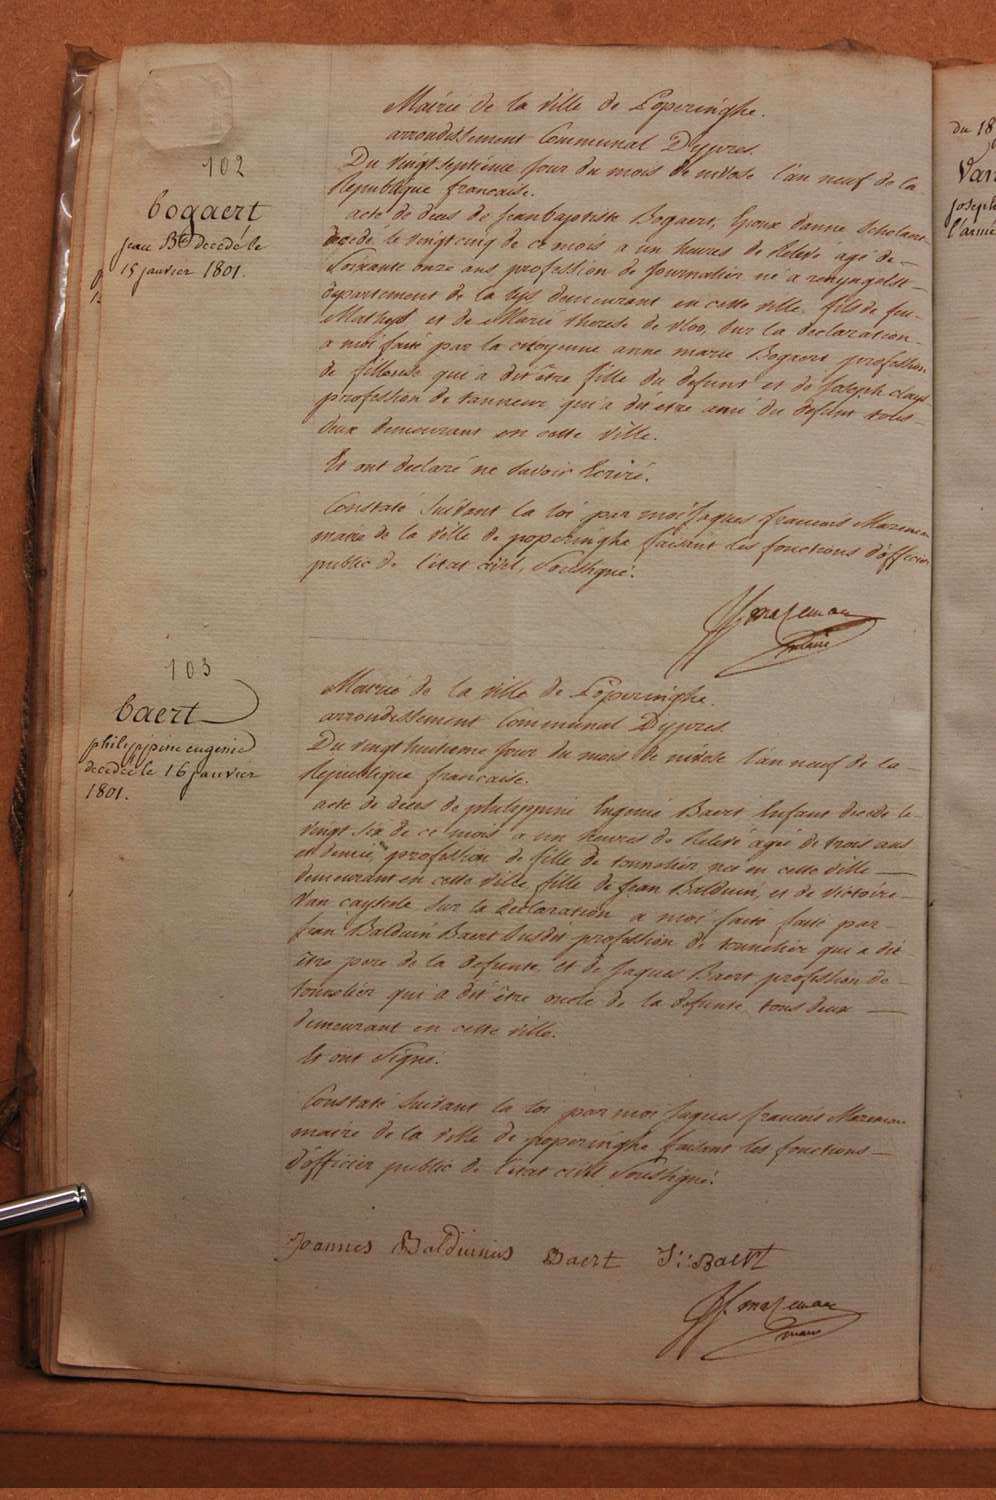 102
bogaert
jean Bte decedé le
15 janvier 1801.
Mairie de la ville de Poperinghe.
arrondissement Communal D'ypres.
Du vingt septième jour du mois de nivose l'an neuf de la
Republique francaise.
acte de deces de jean baptiste Bogaert, Epoux d'anne
decedé le vingt cinq de ce mois a un heures de Relevé agé de
Soixante onze ans, profession de journalier né a renyngelst
departement de la lys demeurant en cette ville, fils de feu
Mathys et de Marie therese de Vloo, Sur la declaration
a moi faite par la citoyenne anne marie Bogaert profession
de fileuse qui a dit être fille du defunt et de joseph clays
profession de tanneur qui a dit etre ami du defunt tous
deux demeurant en cette ville.
Et ont declaré ne savoir Ecrire.
Constaté Suivant la loi par moi jaques francois Mazeman
maire de la ville de poperinghe faisant les fonctions d'officier
public de l'état civil, Soussigné.
JJ mazeman
maire
103
baert
philippine eugenie
decedée le 16 janvier
1801.
Mairie de la ville de Poperinghe.
arrondissement Communal D'ypres.
Du vingt huitieme jour du mois de nivose l'an neuf de la
Republique francaise.
acte de deces de philippine Eugenie Baert Enfant decede le
vingt six de ce mois a un heures de Relevé agé de trois ans
et demie, profession de fille de tonnelier née en cette ville
demeurant en cette ville fille de jean Balduin, et de victoire
Van cayseele Sur la declaration a moi faite faite par
jean Balduin Baert Susdit profession de tonnelier qui a dit
être pere de la defunte, et de jaques Baert profession de
tonnelier qui a dit être oncle de la defunte, tous deux
demeurant en cette ville.
Et ont signé.
Constaté Suivant la loi par moi jaques francois Mazeman
maire de la ville de poperinghe faisant les fonctions
d'officier public de l'état civil Soussigné.
Joannes Balduinus Baert J: Baert
JJ mazeman
maire
du 18
Van
joseph
l'armé